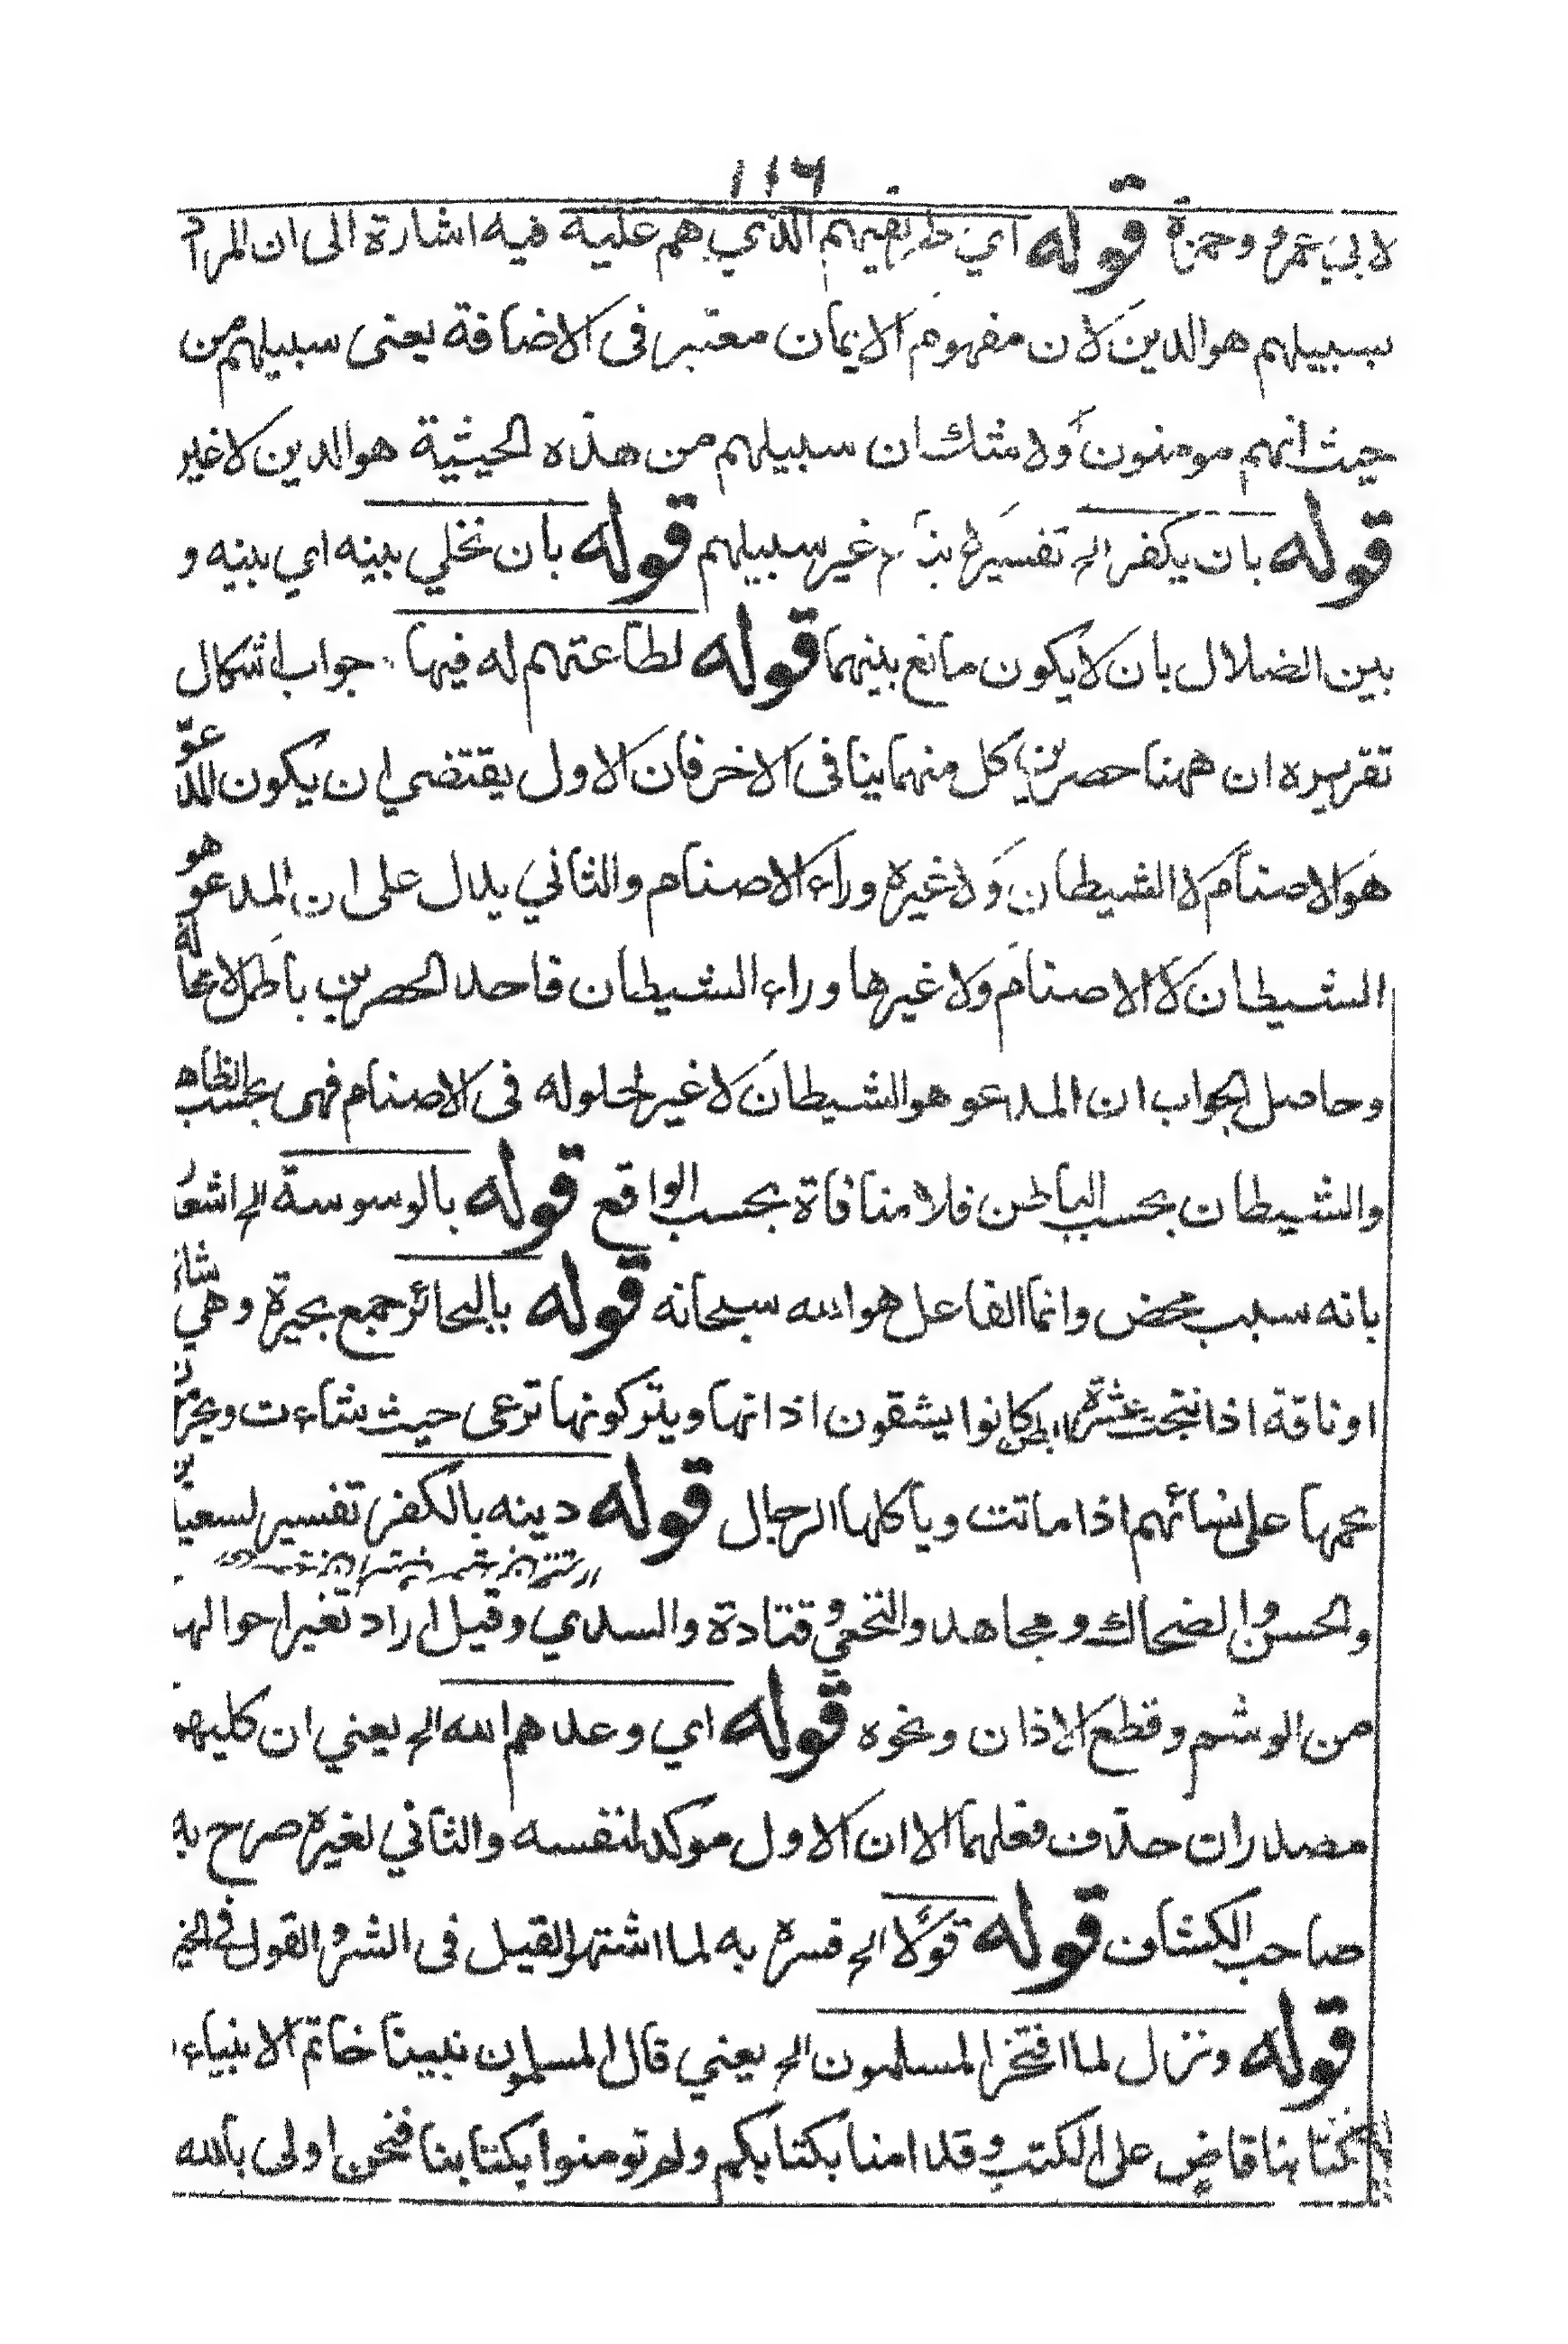 ١١٦
لابي عمرو وحمزة قوله اي طريقهم الذي هم عليه فيه اشارة الى ان المراد
بسبيلهم هو الدين لان مفهوم الايمان معتبر فى الاضافة يعنى سبيلهم من
حيث انهم مومنون ولا شك ان سبيلهم من هذه الحيثية هو الدين لاغير
قوله بان يكفر الخ تفسير غير سبيلهم قوله بان نخلي بينه اي بينه و
بين الضلال بان لا يكون مانع بينهما قوله لطاعتهم له فيها جواب اشكال
تقريره ان ههنا حصرين كل منهما ينافى الاخر فان الاول يقتضي ان يكون المدعو
هو الاصنام لا الشيطان ولا غيره وراء الاصنام والثاني يدل على ان المدعو هو
الشيطان لا الاصنام ولا غيرها وراء الشيطان فاحد الحصرين باطل لا محالة
وحاصل الجواب ان المدعو هو الشيطان لا غير لحلوله فى الاصنام فهى بحسب الظاهر
والشيطان بحسب الباطن فلا منافاة بحسب الواقع قوله بالوسوسة الخ اشعا
بانه سبب محض وانما الفاعل هو الله سبحانه قوله بالبحائر جمع بحيرة وهي شاة
او ناقة اذا نتجت عشرة ابطن كانوا يشقون اذانها ويتركونها ترعى حيث شاءت ويحرمون
لحمها على نسائهم اذا ماتت وياكلها الرجال قوله دينه بالكفر تفسير لسعيد بن
والحسن والضحاك ومجاهد والنخعي وقتادة والسدي وقيل اراد تغير احوالها
من الوشم وقطع الاذان ونحوه قوله اي وعدهم الله الخ يعني ان كليهما
مصدران حذف فعلهما الا ان الاول موكد لنفسه والثاني لغيره صرح به
صاحب الكشاف قوله قولا الخ فسره به لما اشتهر القيل فى الشر والقول في الخير
قوله ونزل لما افتخر المسلمون الخ يعني قال المسلمون نبينا خاتم الانبياء
كتابنا قاض على الكتب وقد امنا بكتابكم ولم تومنوا بكتابنا فنحن اولى بالله